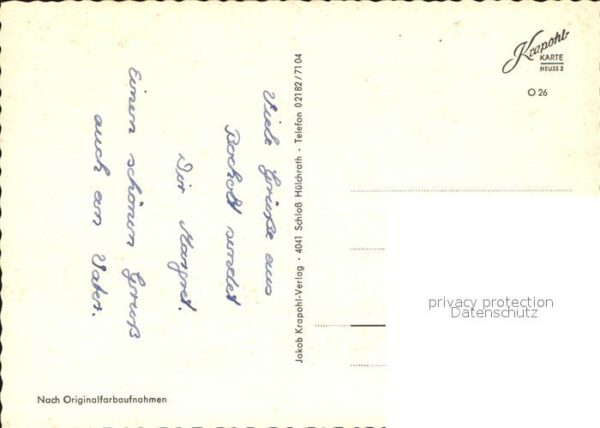 Viele Grüße aus
Bocholt sendet
Dir Margret.
Einen schönen Gruß
auch an Vater.
Jakob Krapohl-Verlag · 4041 Schloß Hülchrath · Telefon 02182/7104
Krapohl
KARTE
NEUSS 2
O 26
privacy protection
Datenschutz
Nach Originalfarbaufnahmen